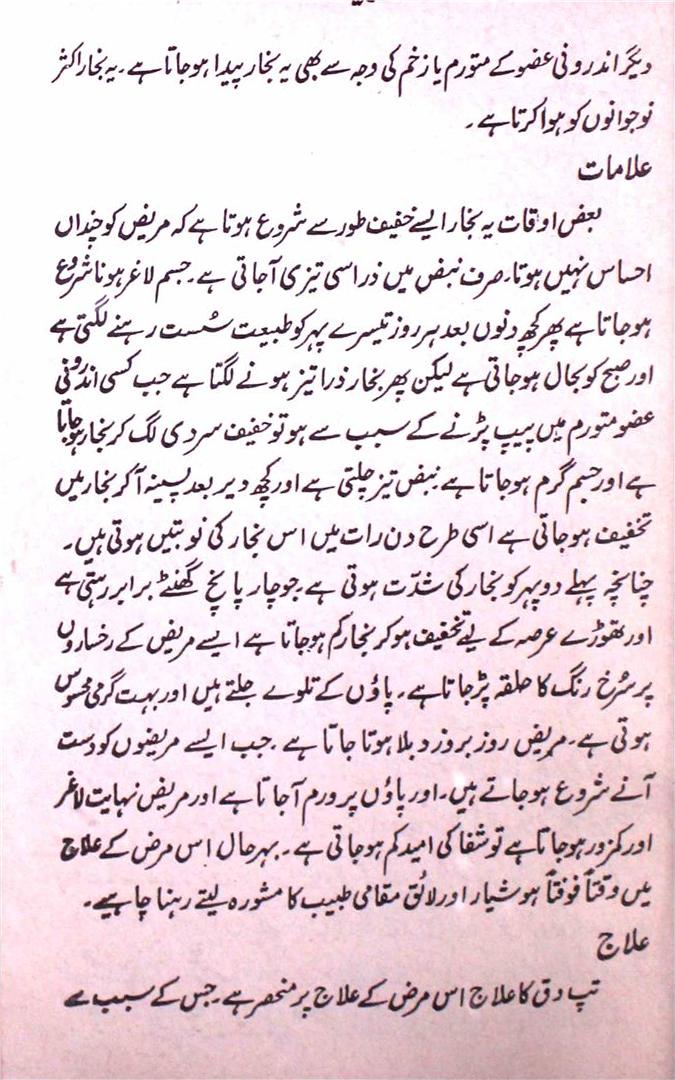 دیگر اندرونی عضو کے متورم یا زخم کی وجہ سے بھی یہ بخار پیدا ہو جاتا ہے۔ یہ بخار اکثر
نوجوانوں کو ہوا کرتا ہے۔
علامات
بعض اوقات یہ بخار ایسے خفیف طور سے شروع ہوتا ہے کہ مریض کو چنداں
احساس نہیں ہوتا۔ صرف نبض میں ذرا سی تیزی آجاتی ہے۔ جسم لاغر ہونا شروع
ہو جاتا ہے پھر کچھ دنوں بعد ہر روز تیسرے پہر کو طبیعت سُست رہنے لگتی ہے
اور صبح کو بحال ہو جاتی ہے لیکن پھر بخار ذرا تیز ہونے لگتا ہے جب کسی اندرونی
عضو متورم میں پیپ پڑنے کے سبب سے ہو تو خفیف سردی لگ کر بخار ہو جاتا
ہے اور جسم گرم ہو جاتا ہے نبض تیز چلتی ہے اور کچھ دیر بعد پسینہ آکر بخار میں
تخفیف ہو جاتی ہے اسی طرح دن رات میں اس بخار کی نوبتیں ہوتی ہیں۔
چنانچہ پہلے دوپہر کو بخار کی شدّت ہوتی ہے۔ جو چار پانچ گھنٹے برابر رہتی ہے
اور تھوڑے عرصہ کے لیے تخفیف ہو کر بخار کم ہو جاتا ہے ایسے مریض کے رخساروں
پر سُرخ رنگ کا حلقہ پڑ جاتا ہے۔ پاؤں کے تلوے جلتے ہیں اور بہت گرمی محسوس
ہوتی ہے۔ مریض روز بروز دبلا ہوتا جاتا ہے۔ جب ایسے مریضوں کو دست
آنے شروع ہو جاتے ہیں۔ اور پاؤں پر ورم آجاتا ہے اور مریض نہایت لاغر
اور کمزور ہو جاتا ہے تو شفا کی امید کم ہو جاتی ہے۔ بہرحال اس مرض کے علاج
میں وقتاً فوقتاً ہوشیار اور لائق مقامی طبیب کا مشورہ لیتے رہنا چاہیے۔
علاج
تپ دق کا علاج اس مرض کے علاج پر منحصر ہے۔ جس کے سبب سے